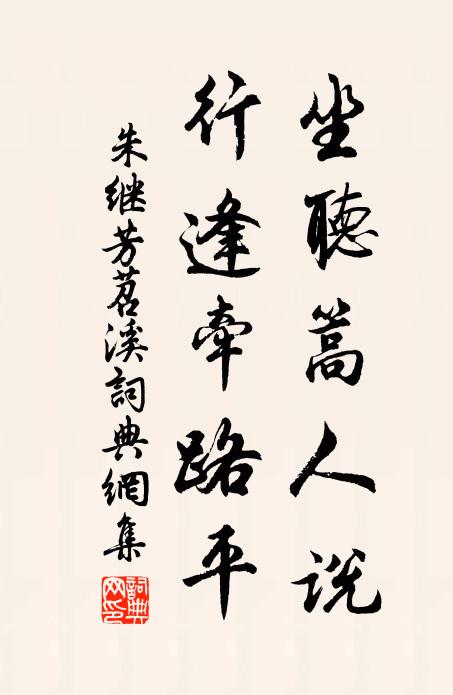 坐聽篙人説
行逢牽路平
朱继芳苕溪詞典網集
詞典
网印